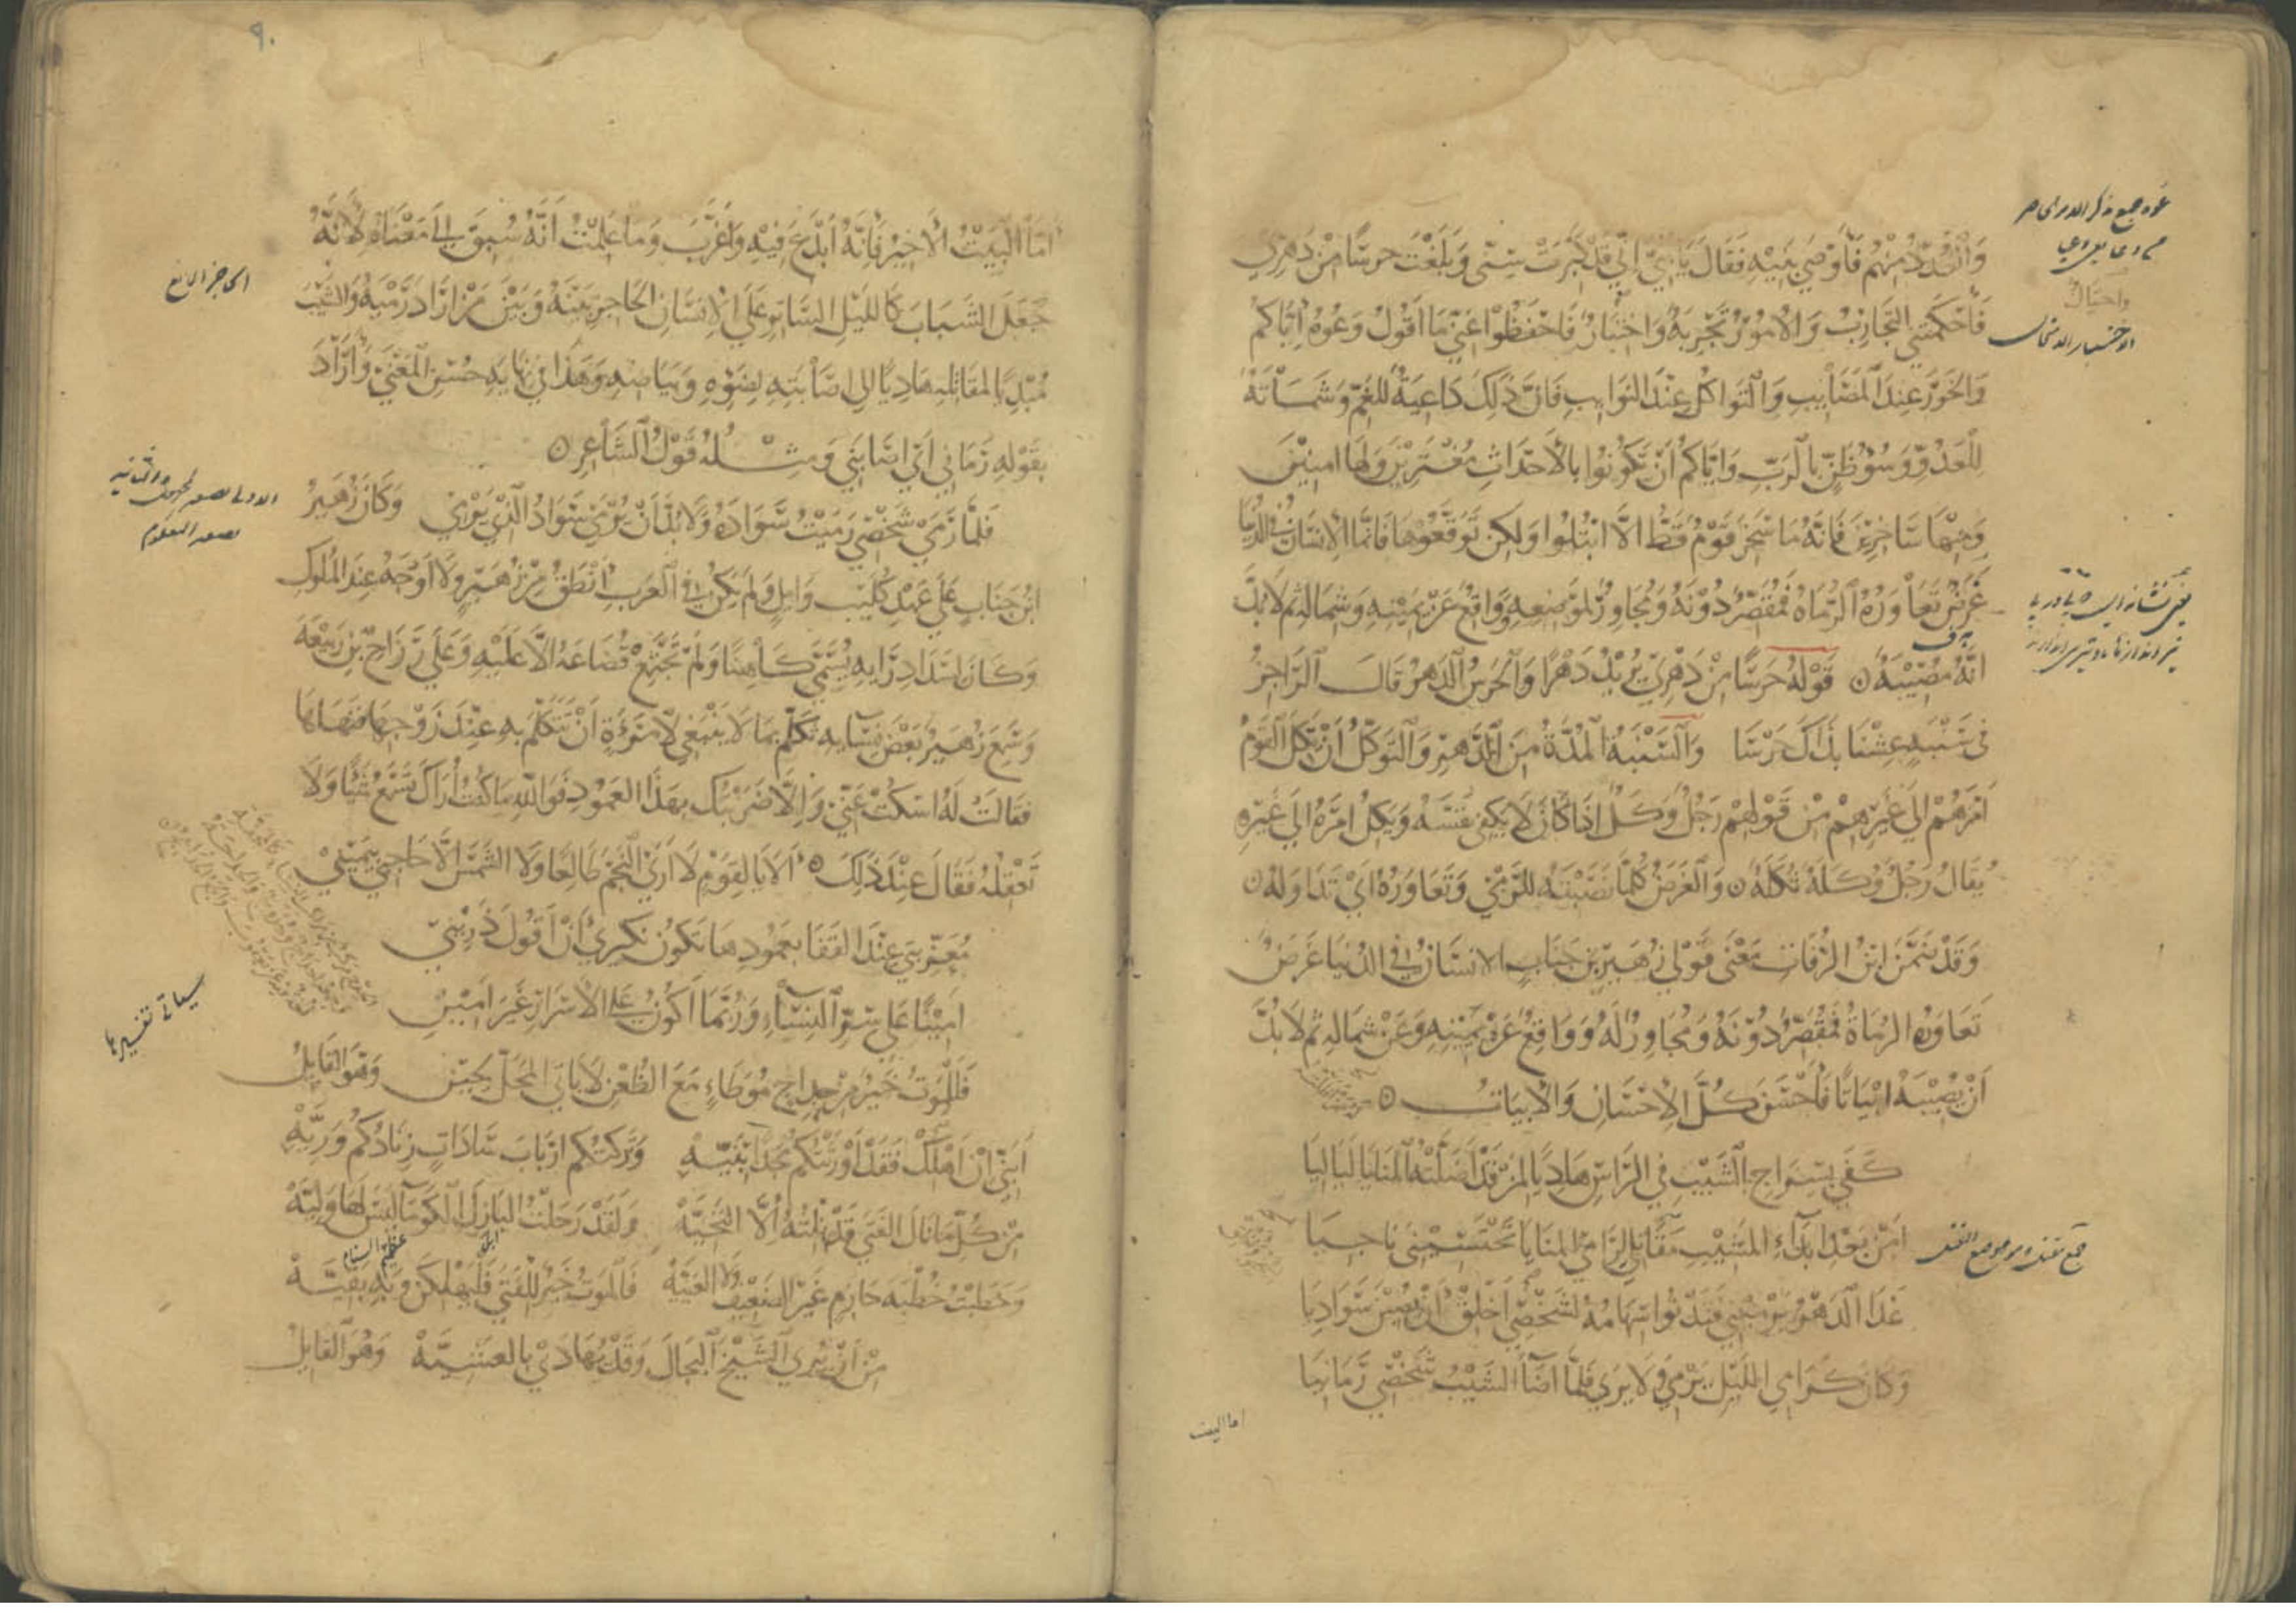 وَانْفُذُ مِنْهُمْ فَأَوْصَى بَنِيْهِ فَقَالَ يَا بَنِيَّ إِنِّي قَدْ كَبُرَتْ سِنِّى وَبَلَغْتُ حَرْسًا مِنْ دَهْرِى
فَأَحْكَمَتْنِي التَّجَارِبُ وَالْأُمُوْرُ تَجْرِبَةٌ وَاخْتِبَارٌ فَاحْفَظُوْا عَنِّي مَا أَقُولُ وَعُوهُ إِيَّاكُمْ
وَالْخَوَرَ عِنْدَ الْمَصَائِبِ وَالتَّوَاكُلَ عِنْدَ النَّوَايِبِ فَإِنَّ ذَلِكَ دَاعِيَةٌ لِلْغَمِّ وَشَمَاتَةٌ
لِلْعَدُوِّ وَسُوْءُ ظَنٍّ بِالرَّبِّ وَإِيَّاكُمْ أَنْ تَكُوْنُوا بِالْأَحْدَاثِ مُغْتَرِّيْنَ وَلَهَا امِنِيْنَ
وَمِنْهَا سَاخِرِيْنَ فَإِنَّهُ مَا سَخِرَ قَوْمٌ قَطُّ إِلَّا ابْتُلُوا وَلَكِنْ تَوَقَّعُوْهَا فَإِنَّمَا الْإِنْسَانُ فِي الدُّنْيَا
غَرَضٌ تَعَاوَرُهُ الرُّمَاةُ فَمُقَصِّرٌ دُوْنَهُ وَمُجَاوِزٌ لِمَوْضِعِهِ وَوَاقِعٌ عَنْ يَمِيْنِهِ وَشِمَالِهِ ثُمَّ لَا بُدَّ
انَّهُ مُصِيْبُهُ ٥ قَوْلُهُ حَرْسًا مِنْ دَهْرِيْ يُرِيْدُ دَهْرًا وَالْحَرْسُ الدَّهْرُ قَالَ الرَّاجِزُ
فِى سَنْبَةٍ عِشْنَا بِذَاكَ حَرْسَا وَالسَّنْبَةُ الْمُدَّةُ مِنَ الدَّهْرِ وَالتَّوَكُّلُ أَنْ يَكِلَ الْقَوْمُ
أَمْرَهُمْ إِلَى غَيْرِهِمْ مِنْ قَوْلِهِمْ رَجُلٌ وَكَلٌ إِذَا كَانَ لَا يَكْفِي نَفْسَهُ وَيَكِلُ أَمْرَهُ إِلَى غَيْرِهِ
يُقَالُ رَجُلٌ وُكَلَةٌ تُكَلَةٌ ٥ وَالْغَرَضُ كُلَّمَا نَصَبْتَهُ لِلرَّمْيِ وَتَعَاوَرُهُ أَيْ تَدَاوَلُهُ ٥
وَقَدْ ضَمَّنَ ابْنُ الرُّوْمِيِّ مَعْنَى قَوْلِ زُهَيْرِ بْنِ جَنَابٍ الْإِنْسَانُ فِي الدُّنْيَا غَرَضٌ
تَعَاوَرُهُ الرُّمَاةُ فَمُقَصِّرٌ دُوْنَهُ وَمُجَاوِزٌ لَهُ وَوَاقِعٌ عَنْ يَمِيْنِهِ وَعَنْ شِمَالِهِ ثُمَّ لَا بُدَّ
أَنْ يُصِيْبَهُ ابْيَاتًا فَأَحْسَنَ كُلَّ الْإِحْسَانِ وَالْأَبْيَاتُ ٥
كَفَى بِسِرَاجِ الشَّيْبِ فِي الرَّأْسِ هَادِيًا لِمَنْ قَدْ أَضَلَّتْهُ الْمَنَايَا لَيَالِيَا
أَمِنْ بَعْدِ إِبْدَاءِ الْمَشِيْبِ مَقَاتِلِي لِرَامِي الْمَنَايَا تَحْسَبِيْنِي نَاجِيَا
غَدَا الدَّهْرُ يَرْمِيْنِي فَتَدْنُوا سِهَامُهُ لِشَخْصِي أَخْلِقْ أَنْ يُصِبْنَ سَوَادِيَا
وَكَانَ كَرَامِي اللَّيْلِ يَرْمِي وَلَا يَرَى فَلَمَّا أَضَاءَ الشَّيْبُ شَخْصِي رَمَانِيَا
اما البيت
أَمَّا الْبَيْتُ الْأَخِيْرُ فَإِنَّهُ أَبْدَعَ فِيْهِ وَأَغْرَبَ وَمَا عَلِمْتُ أَنَّهُ سُبِقَ إِلَى مَعْنَاهُ لِأَنَّهُ
جَعَلَ الشَّبَابَ كَاللَّيْلِ السَّاتِرِ عَلَى الْإِنْسَانِ الْحَاجِزِ بَيْنَهُ وَبَيْنَ مَنْ أَرَادَ رَمْيَهُ وَالشَّيْبَ
مُبْدِيًا لِمَقَاتِلِهِ هَادِيًا إِلَى إِصَابَتِهِ لِضَوْءِهِ وَبَيَاضِهِ وَهَذَا فِي نِهَايَةِ حُسْنِ الْمَعْنَى وَأَرَادَ
بِقَوْلِهِ رَمَانِي أَيْ أَصَابَنِي وَمِثْلُهُ قَوْلُ الشَّاعِرِ ٥
فَلَمَّا رَمَى شَخْصِي رَمَيْتُ سَوَادَهُ وَلَا بُدَّ أَنْ يُرْمَى سَوَادُ الَّذِي يَرْمِي وَكَانَ زُهَيْرُ
ابْنُ جَنَابٍ عَلَى عَهْدِ كُلَيْبِ وَايِلٍ وَلَمْ يَكُنْ فِي الْعَرَبِ أَنْطَقُ مِنْ زُهَيْرٍ وَلَا أَوْجَهُ عِنْدَ الْمُلُوكِ
وَكَانَ لِسَدَادِ رَايِهِ يُسَمَّى كَاهِنًا وَلَمْ تَجْتَمِعْ قُضَاعَةُ إِلَّا عَلَيْهِ وَعَلَى رِزَاحِ بْنِ رَبِيْعَةَ
وَسَمِعَ زُهَيْرٌ بَعْضَ نِسَائِهِ تَكَلَّمَ بِمَا لَا يَنْبَغِي لِامْرَأَةٍ أَنْ تَتَكَلَّمَ بِهِ عِنْدَ زَوْجِهَا فَنَهَاهَا
فَقَالَتْ لَهُ اسْكُتْ عَنِّي وَإِلَّا ضَرَبْتُكَ بِهَذَا الْعَمُوْدِ فَوَاللّهِ مَا كُنْتُ أُرَاكَ تَسْمَعُ شَيْئًا وَلَا
تَعْقِلُهُ فَقَالَ عِنْدَ ذَلِكَ ٥ أَلَا يَا لِقَوْمٍ لَا أَرَى النَّجْمَ طَالِعًا وَلَا الشَّمْسَ إِلَّا حَاجِبِي بِيَمِيْنِي
مُعَزِّبَتِي عِنْدَ الْقَفَا بِعَمُوْدِهَا تَكُوْنُ نَكِيْرِي أَنْ أَقُولَ ذَرِيْنِي
أَمِيْنًا عَلَى سِرِّ النِّسَاءِ وَرُبَّمَا أَكُوْنُ عَلَى الْأَسْرَارِ غَيْرَ أَمِيْنِ
فَلَلْمَوْتُ خَيْرٌ مِنْ حِدَاجٍ مُوَطَّاءٍ مَعَ الظُّعْنِ لَا يَاتِي الْمَحَلَّ لِحِيْنِ وَهُوَ الْقَايِلُ
أَبَنِيَّ إِنْ أَهْلِكْ فَقَدْ أَوْرَثْتُكُمْ مَجْدًا بَنِيَّهْ وَتَرَكْتُكُمْ أَرْبَابَ سَادَاتٍ زِنَادُكُمُ وَرِيَّهْ
مِنْ كُلِّ مَا نَالَ الْفَتَى قَدْ نِلْتُهُ إِلَّا التَّحِيَّهْ وَلَقَدْ رَحَلْتُ الْبَازِلَ الْكَوْمَاءَ لَيْسَ لَهَا وَلِيَّهْ
وَخَطَبْتُ خُطْبَةَ حَازِمٍ غَيْرِ الضَّعِيْفِ وَلَا الْعَيِيَّهْ فَالْمَوْتُ خَيْرٌ لِلْفَتَى فَلْيَهْلِكَنْ وَبِهِ بَقِيَّهْ
مِنْ أَنْ يَرَى الشَّيْخَ الْبَجَالَ وَقَدْ يُهَادَى بِالْعَشِيَّهْ وَهُوَ الْقَايِلُ
سياتي تفسيرها
٩٠